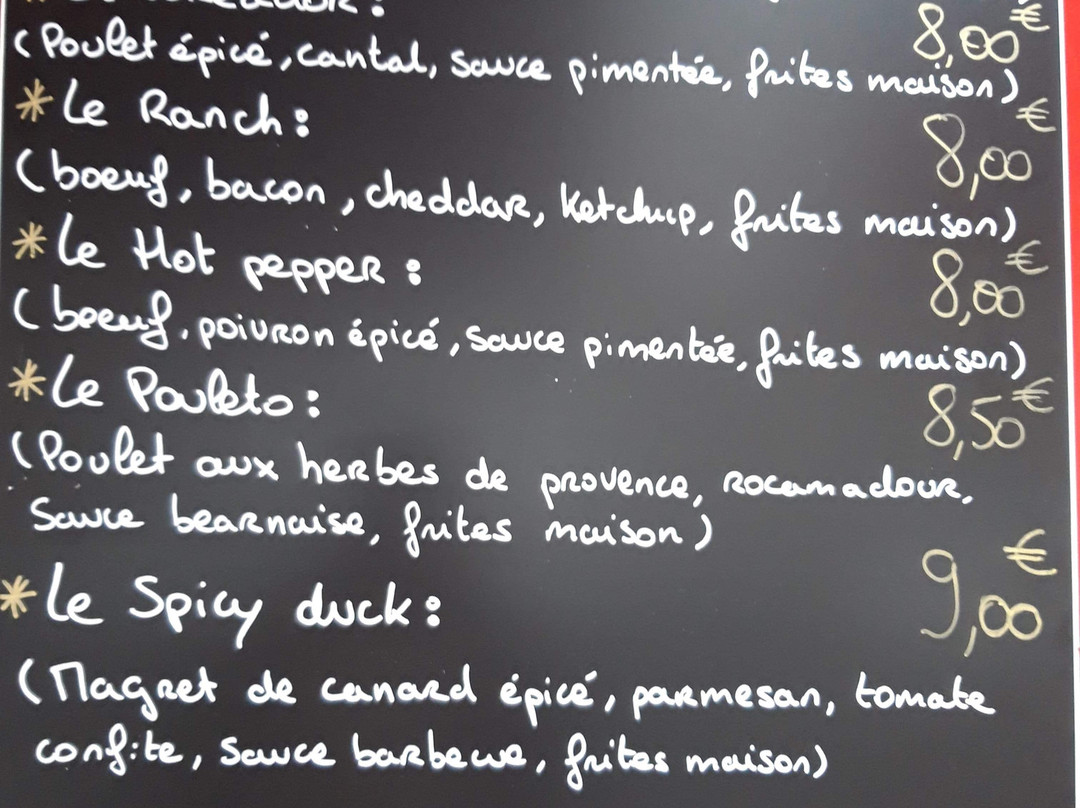 8,00€
(Poulet épicé, cantal, sauce pimentée, frites maison)
* Le Ranch : 8,00€
(boeuf, bacon, cheddar, ketchup, frites maison)
* Le Hot pepper : 8,00€
(boeuf, poivron épicé, sauce pimentée, frites maison)
* Le Pouleto : 8,50€
(Poulet aux herbes de provence, rocamadour,
Sauce bearnaise, frites maison)
* Le Spicy duck : 9,00€
(Magret de canard épicé, parmesan, tomate
confite, sauce barbecue, frites maison)